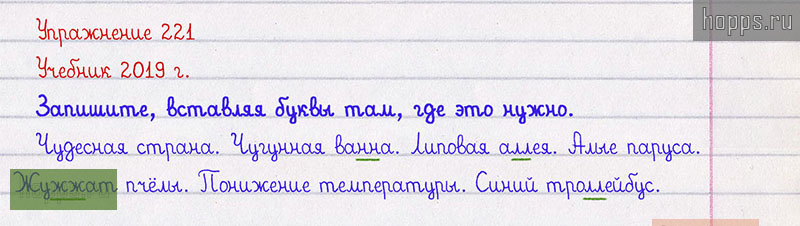 hopps.ru
Упражнение 221
Учебник 2019 г.
Запишите, вставляя буквы там, где это нужно.
Чудесная страна. Чугунная ванна. Липовая аллея. Алые паруса.
Жужжат пчёлы. Понижение температуры. Синий троллейбус.